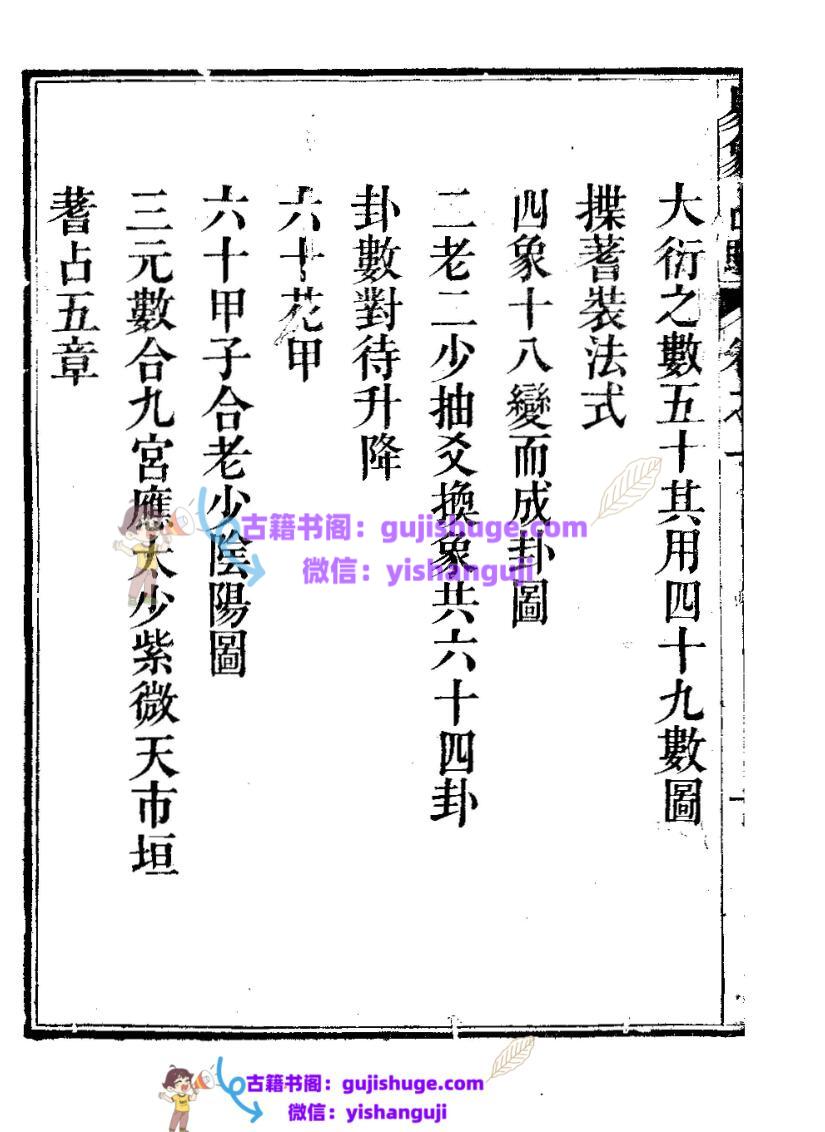 大衍之數五十其用四十九數圖
揲蓍裝法式
四象十八變而成卦圖
二老二少抽爻換象共六十四卦
卦數對待升降
六十花甲
六十甲子合老少陰陽圖
三元數合九宮應太少紫微天市垣
蓍占五章
古籍书阁：gujishuge.com
微信：yishanguji
古籍书阁：gujishuge.com
微信：yishanguji